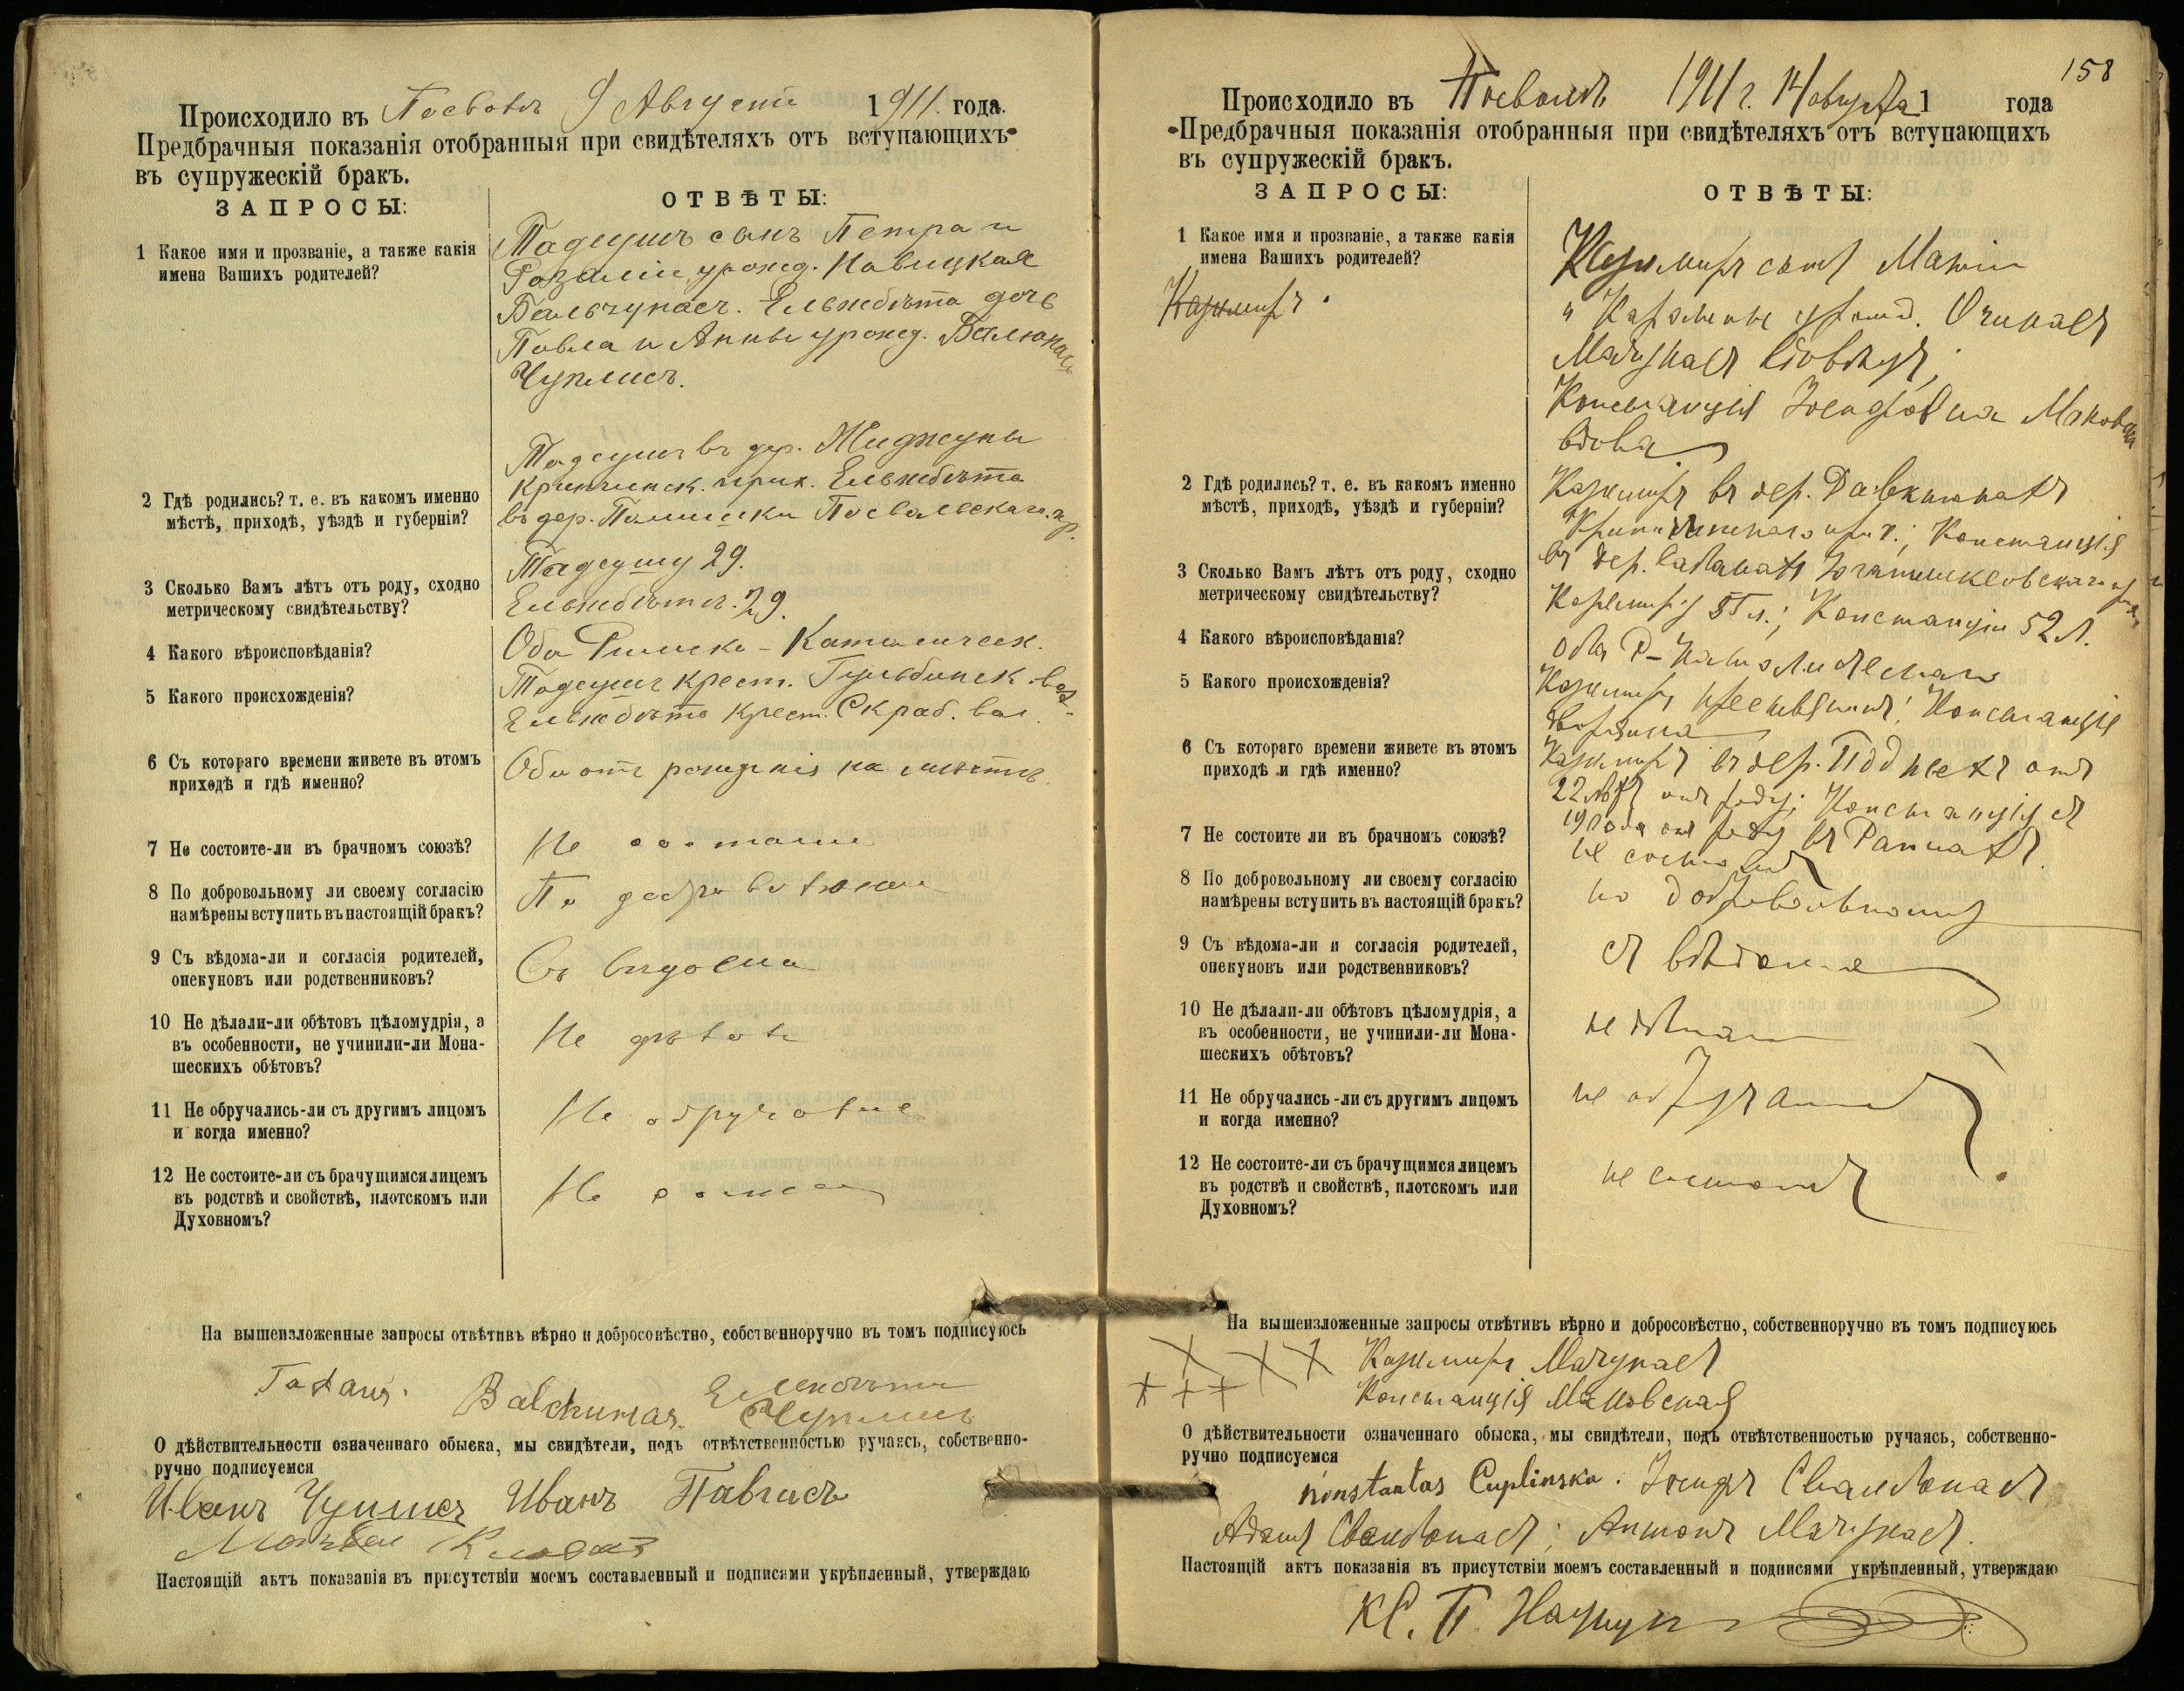 Происходило въ Посвотъ 9 Августа 1911 года.
Предбрачныя показанія отобранныя при свидѣтеляхъ отъ вступающихъ
въ супружескій бракъ.
ЗАПРОСЫ:
ОТВѢТЫ:
1 Какое имя и прозваніе, а также какія
имена Вашихъ родителей?
Тадеушъ сынъ Петра и
Розаліи урожд. Новицкая
Бальчунасъ. Ельжбѣта дочь
Павла и Анны урожд. Валюнасъ
Чуплисъ.
2 Гдѣ родились? т. е. въ какомъ именно
мѣстѣ, приходѣ, уѣздѣ и губерніи?
Тадеушъ въ дер. Жиджуны
Кринчинск. прих. Ельжбѣта
въ дер. Памишки Посвольскаго пр.
3 Сколько Вамъ лѣтъ отъ роду, сходно
метрическому свидѣтельству?
Тадеушу 29.
Ельжбѣтѣ. 29.
4 Какого вѣроисповѣданія?
Оба Римско-Католическ.
5 Какого происхожденія?
Тадеушъ крест. Гульбинск. вол.
Ельжбѣта крест. Скраб. вол.
6 Съ котораго времени живете въ этомъ
приходѣ и гдѣ именно?
Оба отъ рожденія на мѣстѣ.
7 Не состоите-ли въ брачномъ союзѣ?
Не состоимъ
8 По добровольному ли своему согласію
намѣрены вступить въ настоящій бракъ?
По добровольному
9 Съ вѣдома-ли и согласія родителей,
опекуновъ или родственниковъ?
Съ вѣдома
10 Не дѣлали-ли обѣтовъ цѣломудрія, а
въ особенности, не учинили-ли Мона-
шескихъ обѣтовъ?
Не дѣлали
11 Не обручались-ли съ другимъ лицомъ
и когда именно?
Не обручались
12 Не состоите-ли съ брачущимся лицемъ
въ родствѣ и свойствѣ, плотскомъ или
Духовномъ?
Не состоимъ
На вышеизложенные запросы отвѣтивъ вѣрно и добросовѣстно, собственноручно въ томъ подписуюсь
Balchunas. Ельжбѣта
Чуплисъ
О дѣйствительности означеннаго обыска, мы свидѣтели, подъ отвѣтственностью ручаясь, собственно-
ручно подписуемся
Иванъ Чуплисъ Иванъ
Настоящій актъ показанія въ присутствіи моемъ составленный и подписями укрѣпленный, утверждаю
158
Происходило въ Посволѣ 1911 г. 14 августа 1 года
Предбрачныя показанія отобранныя при свидѣтеляхъ отъ вступающихъ
въ супружескій бракъ.
ЗАПРОСЫ:
ОТВѢТЫ:
1 Какое имя и прозваніе, а также какія
имена Вашихъ родителей?
Казимиръ
Казимиръ сынъ
урожд.
Мачунасъ вдовецъ;
Констанція Іосифовна Маковская
вдова
2 Гдѣ родились? т. е. въ какомъ именно
мѣстѣ, приходѣ, уѣздѣ и губерніи?
Казимиръ въ дер.
Кринчинскаго прих.; Констанція
въ дер.
3 Сколько Вамъ лѣтъ отъ роду, сходно
метрическому свидѣтельству?
Казимиру л.; Констанціи 52 л.
4 Какого вѣроисповѣданія?
оба Р-Католическаго
5 Какого происхожденія?
Казимиръ крестьянинъ; Констанція
дворянка
6 Съ котораго времени живете въ этомъ
приходѣ и гдѣ именно?
Казимиръ въ дер. отъ
22 лѣтъ отъ роду; Констанція съ
19 года отъ роду въ
7 Не состоите ли въ брачномъ союзѣ?
не состоимъ
8 По добровольному ли своему согласію
намѣрены вступить въ настоящій бракъ?
по добровольному
9 Съ вѣдома-ли и согласія родителей,
опекуновъ или родственниковъ?
съ вѣдома
10 Не дѣлали-ли обѣтовъ цѣломудрія, а
въ особенности, не учинили-ли Мона-
шескихъ обѣтовъ?
не дѣлали
11 Не обручались-ли съ другимъ лицомъ
и когда именно?
не обручались
12 Не состоите-ли съ брачущимся лицемъ
въ родствѣ и свойствѣ, плотскомъ или
Духовномъ?
не состоимъ
На вышеизложенные запросы отвѣтивъ вѣрно и добросовѣстно, собственноручно въ томъ подписуюсь
Х Х Х Казимиръ Мачунасъ
+ + + Констанція Маковская
О дѣйствительности означеннаго обыска, мы свидѣтели, подъ отвѣтственностью ручаясь, собственно-
ручно подписуемся
Konstantas Cuplinska. Іосифъ Свилйонасъ
Адамъ Свилйонасъ; Антонъ Мачунасъ.
Настоящій актъ показанія въ присутствіи моемъ составленный и подписями укрѣпленный, утверждаю
Кс. П.